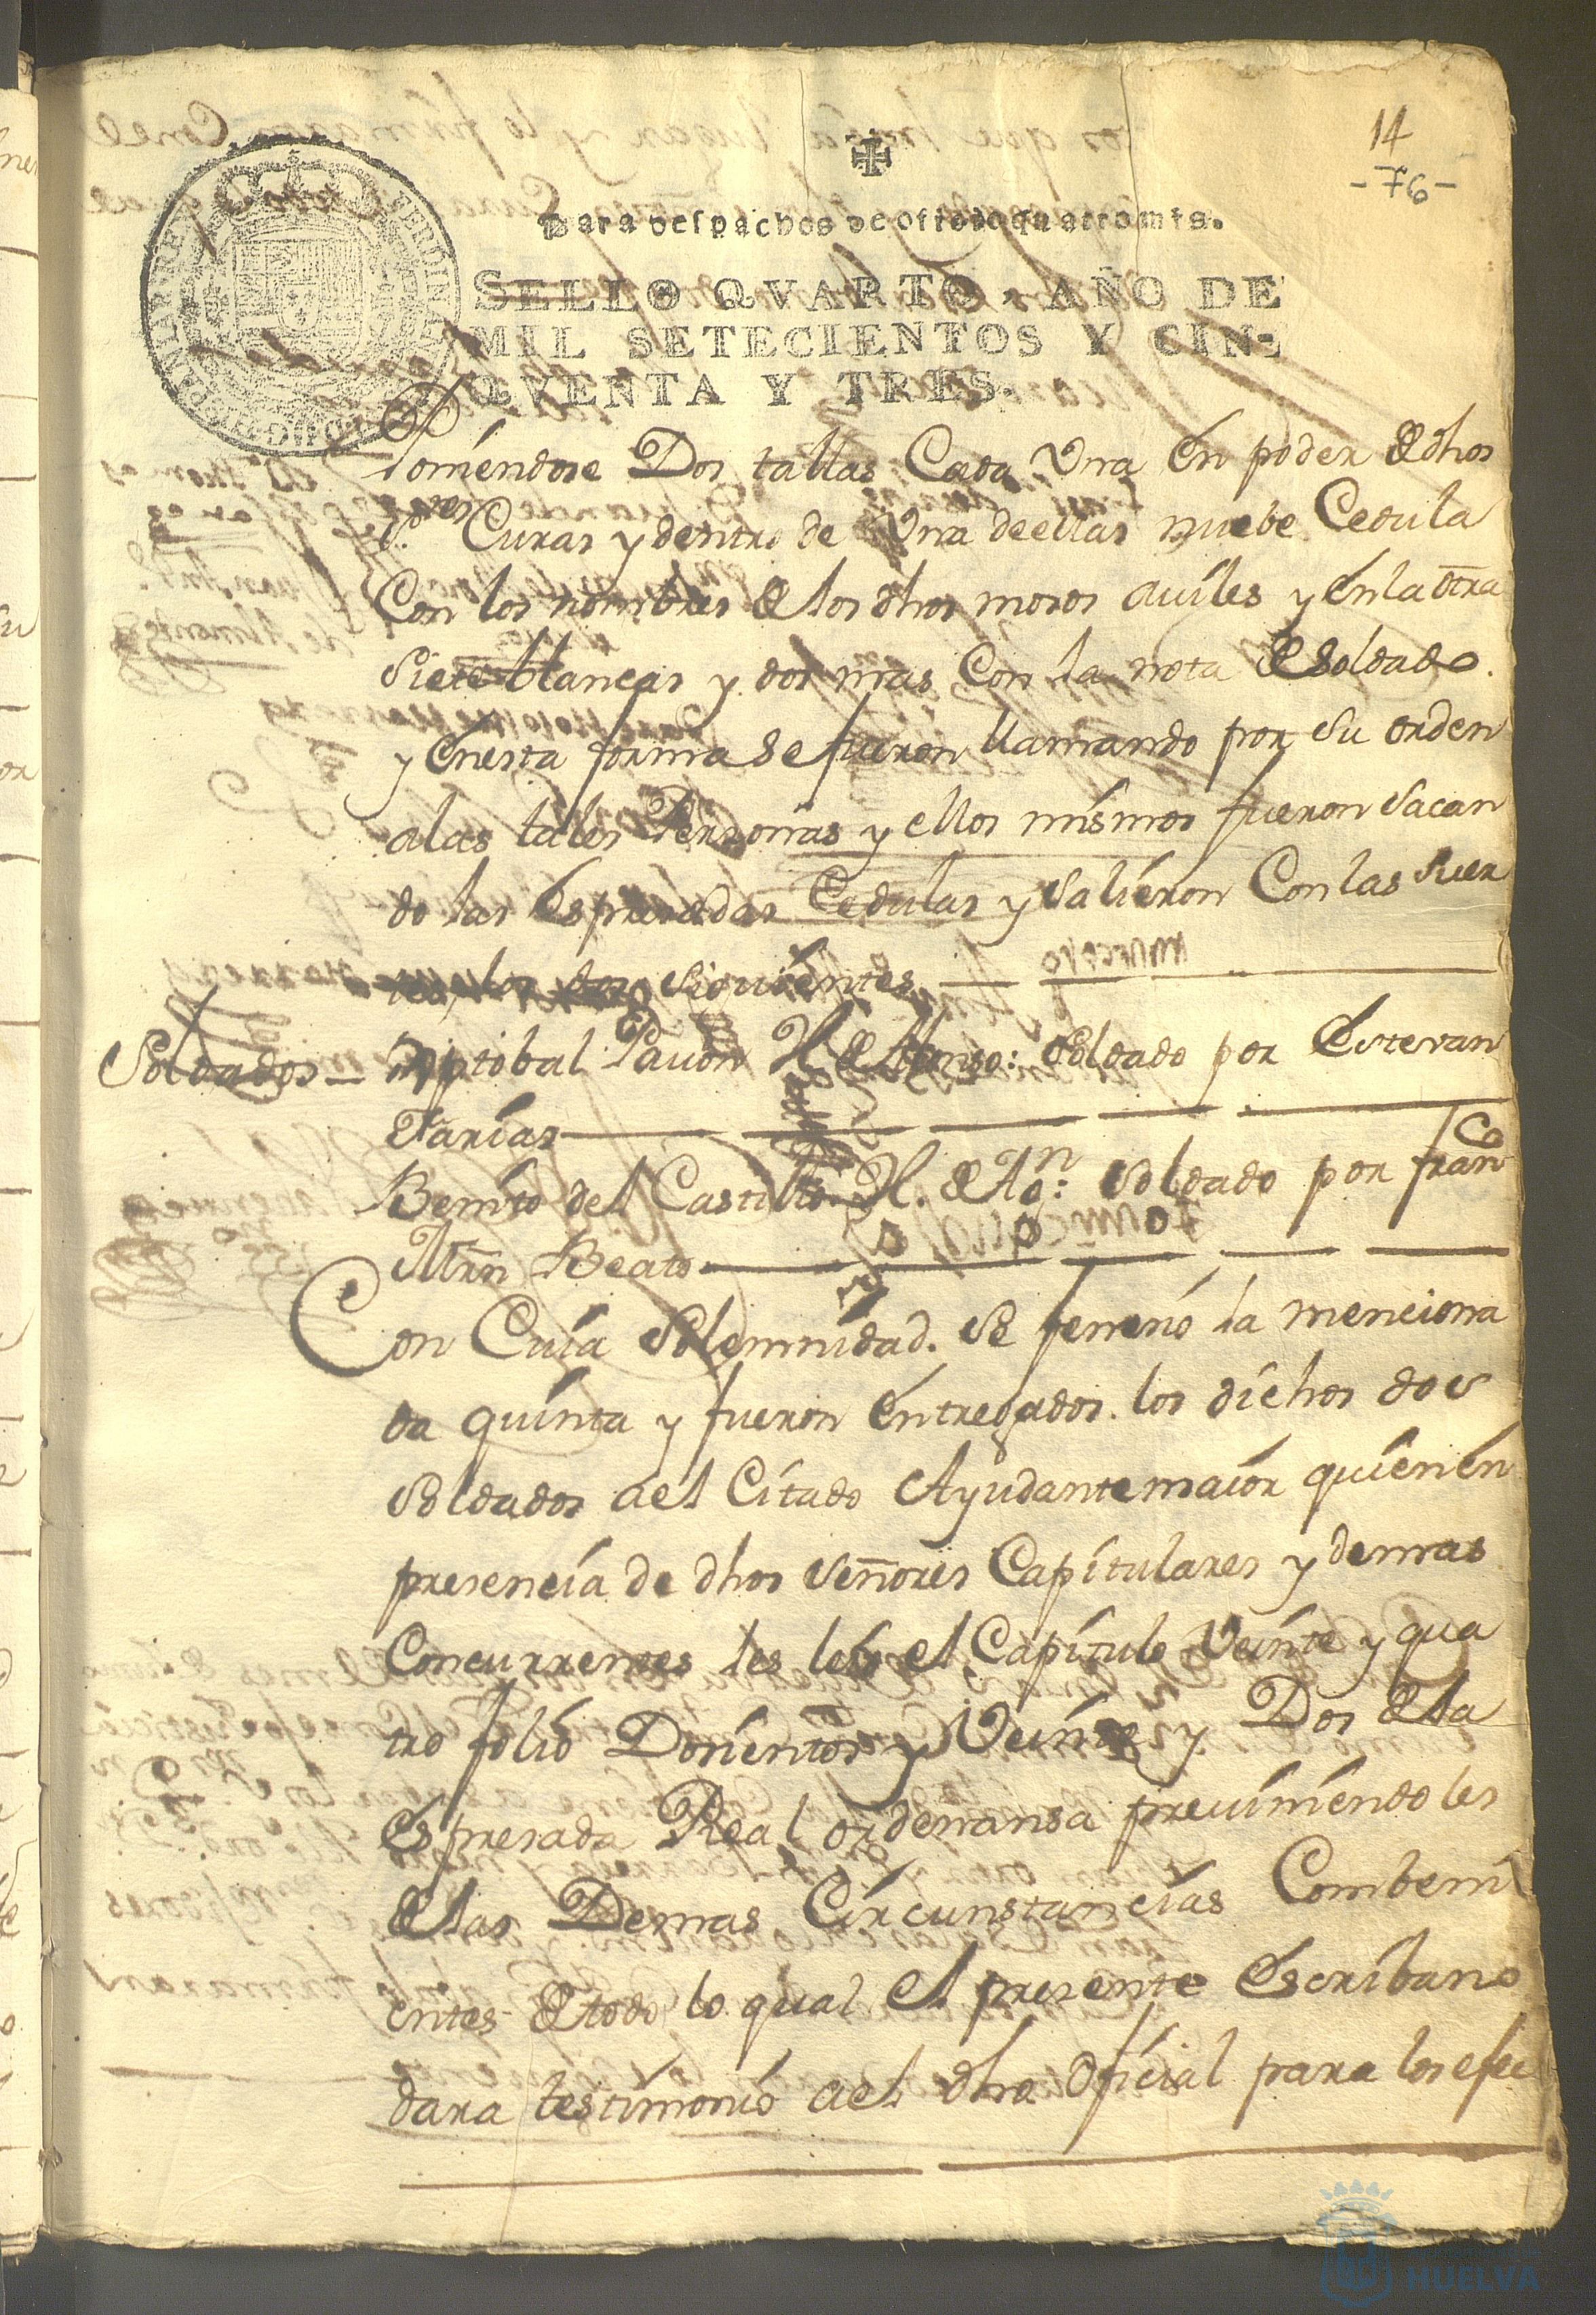 14
-76-
Para despachos de oficio quatro mrs.
SELLO QVARTO, AÑO DE
MIL SETECIENTOS Y CIN-
QVENTA Y TRES.
Poniendose Dos tallas Cada Vna en poder de dhos
s.res Curas y dentro de Vna de ellas nuebe Cedula
Con los nombres de los dhos mosos auiles y en la otra
Siete blancas y dos mas Con la nota de Soldado.
y en esta forma se fueron llamando por Su orden
alas tales Personas y ellos mismos fueron Sacan
do las espresadas Cedulas y Salieron Con las Suer
tes los dos Siguientes
Soldados Xptobal Pauon H. de Alonso: Soldado por Estevan
Farias
Benito del Castillo H. de Anº: Soldado por franco
Mrn Beato
Con Cuia Solemnidad. Se feneno la menciona
da quinta y fueron entregados. los dichos dos
Soldados ael Citado Ayudante maior quien en
presencia de dhos Señores Capitulares y demas
Concurrentes les leio el Capitulo Veinte y qua
tro folio Dosientos y Veinte y Dos de la
espresada Real ordenansa preuiniendoles
de las Demas Circunstancias Combeni
entes de todo lo qual el presente Escribano
dara testimonio ael dho oficial para los efec
HUELVA